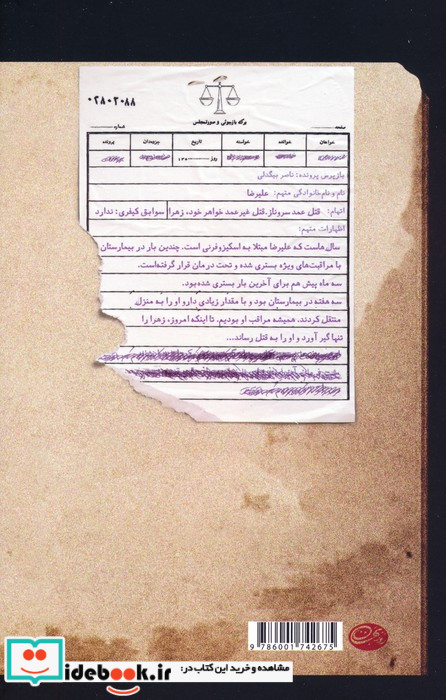 ۰۲۸۰۲۰۸۸
برگه بازجوئی و صورتمجلس
صفحه: شماره:
خواهان خوانده خواسته تاریخ جزوه‌دان پرونده
روز
بازپرس پرونده: ناصر بیگدلی
نام و نام خانوادگی متهم: علیرضا
اتهام: قتل عمد سروناز، قتل غیرعمد خواهر خود، زهرا سوابق کیفری: ندارد
اظهارات متهم:
سال‌هاست که علیرضا مبتلا به اسکیزوفرنی است. چندین بار در بیمارستان
با مراقبت‌های ویژه بستری شده و تحت درمان قرار گرفته‌است.
سه ماه پیش هم برای آخرین بار بستری شده بود.
سه هفته در بیمارستان بود و با مقدار زیادی دارو او را به منزل
منتقل کردند. همیشه مراقب او بودیم. تا اینکه امروز، زهرا را
تنها گیر آورد و او را به قتل رساند...
9 786001 742675
idebook.ir
مشاهده و خرید این کتاب در: